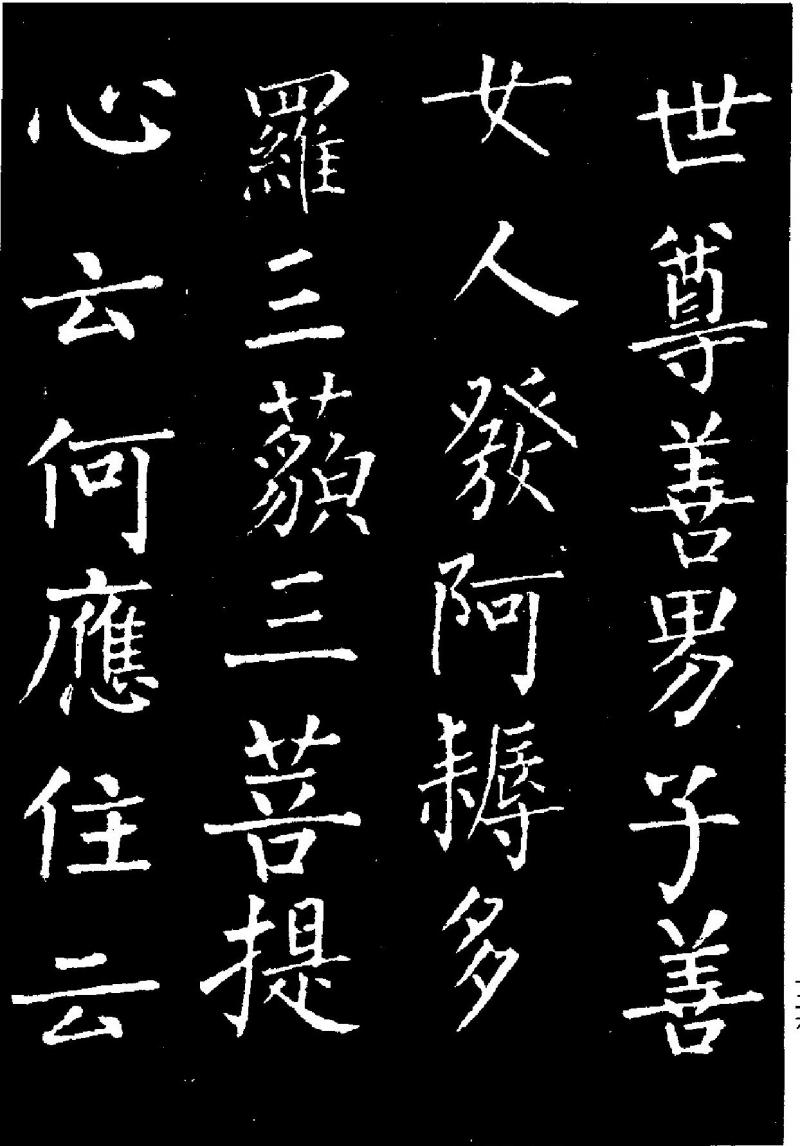 世尊善男子善
女人發阿耨多
羅三藐三菩提
心云何應住云